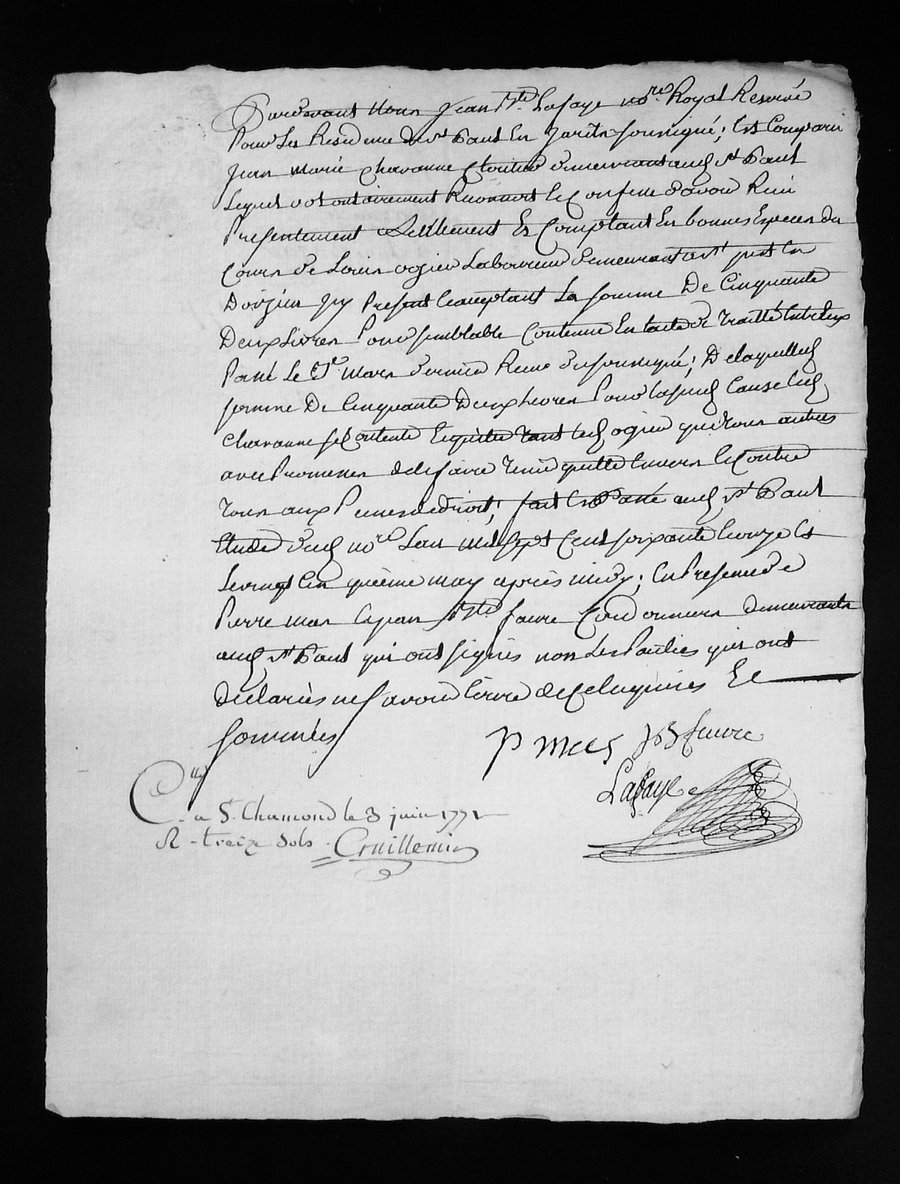 Pardevant Nous Jean Bte Lafaye nore Royal Reservé
Pour La Residence de St Paul En Jarêts soussigné; Est Comparu
Jean Marie Chavanne Cloutier demeurant aud St Paul
Lequel volontairement Reconnoit & Confesse d'avoir Reçu
Presentement Réellement Et Comptant En bonnes Especes du
Cours de Louis ogier Laboureur demeurant a St just En
Doizieu Icy Present & acceptant La somme De Cinquante
Deux Livres Pour semblable Contenue En l'acte de Traitté Entr'eux
Passé Le Mars dernier Reçu du soussigné; De laquelle
somme De Cinquante Deux Livres Pour lad Cause led
Chavanne se Contente Enquitte tant led ogier que tous autres
avec Promesses de le faire Tenir quitte Envers & Contre
Tous aux Peines de droit; fait & Passé aud St Paul
Etude dud nore L'an mil sept Cent soixante & onze &
Le vingt cin quième may après midy; En Presence de
Pierre mas & jean Bte faure Cordonniers demeurants
aud St Paul qui ont signés non Les Parties qui ont
déclarés ne savoir Ecrire de Ce Enquises Et
sommées
p mas jb faure
Lafaye
C. a St Chamond le 3 juin 1771
R. treize sols